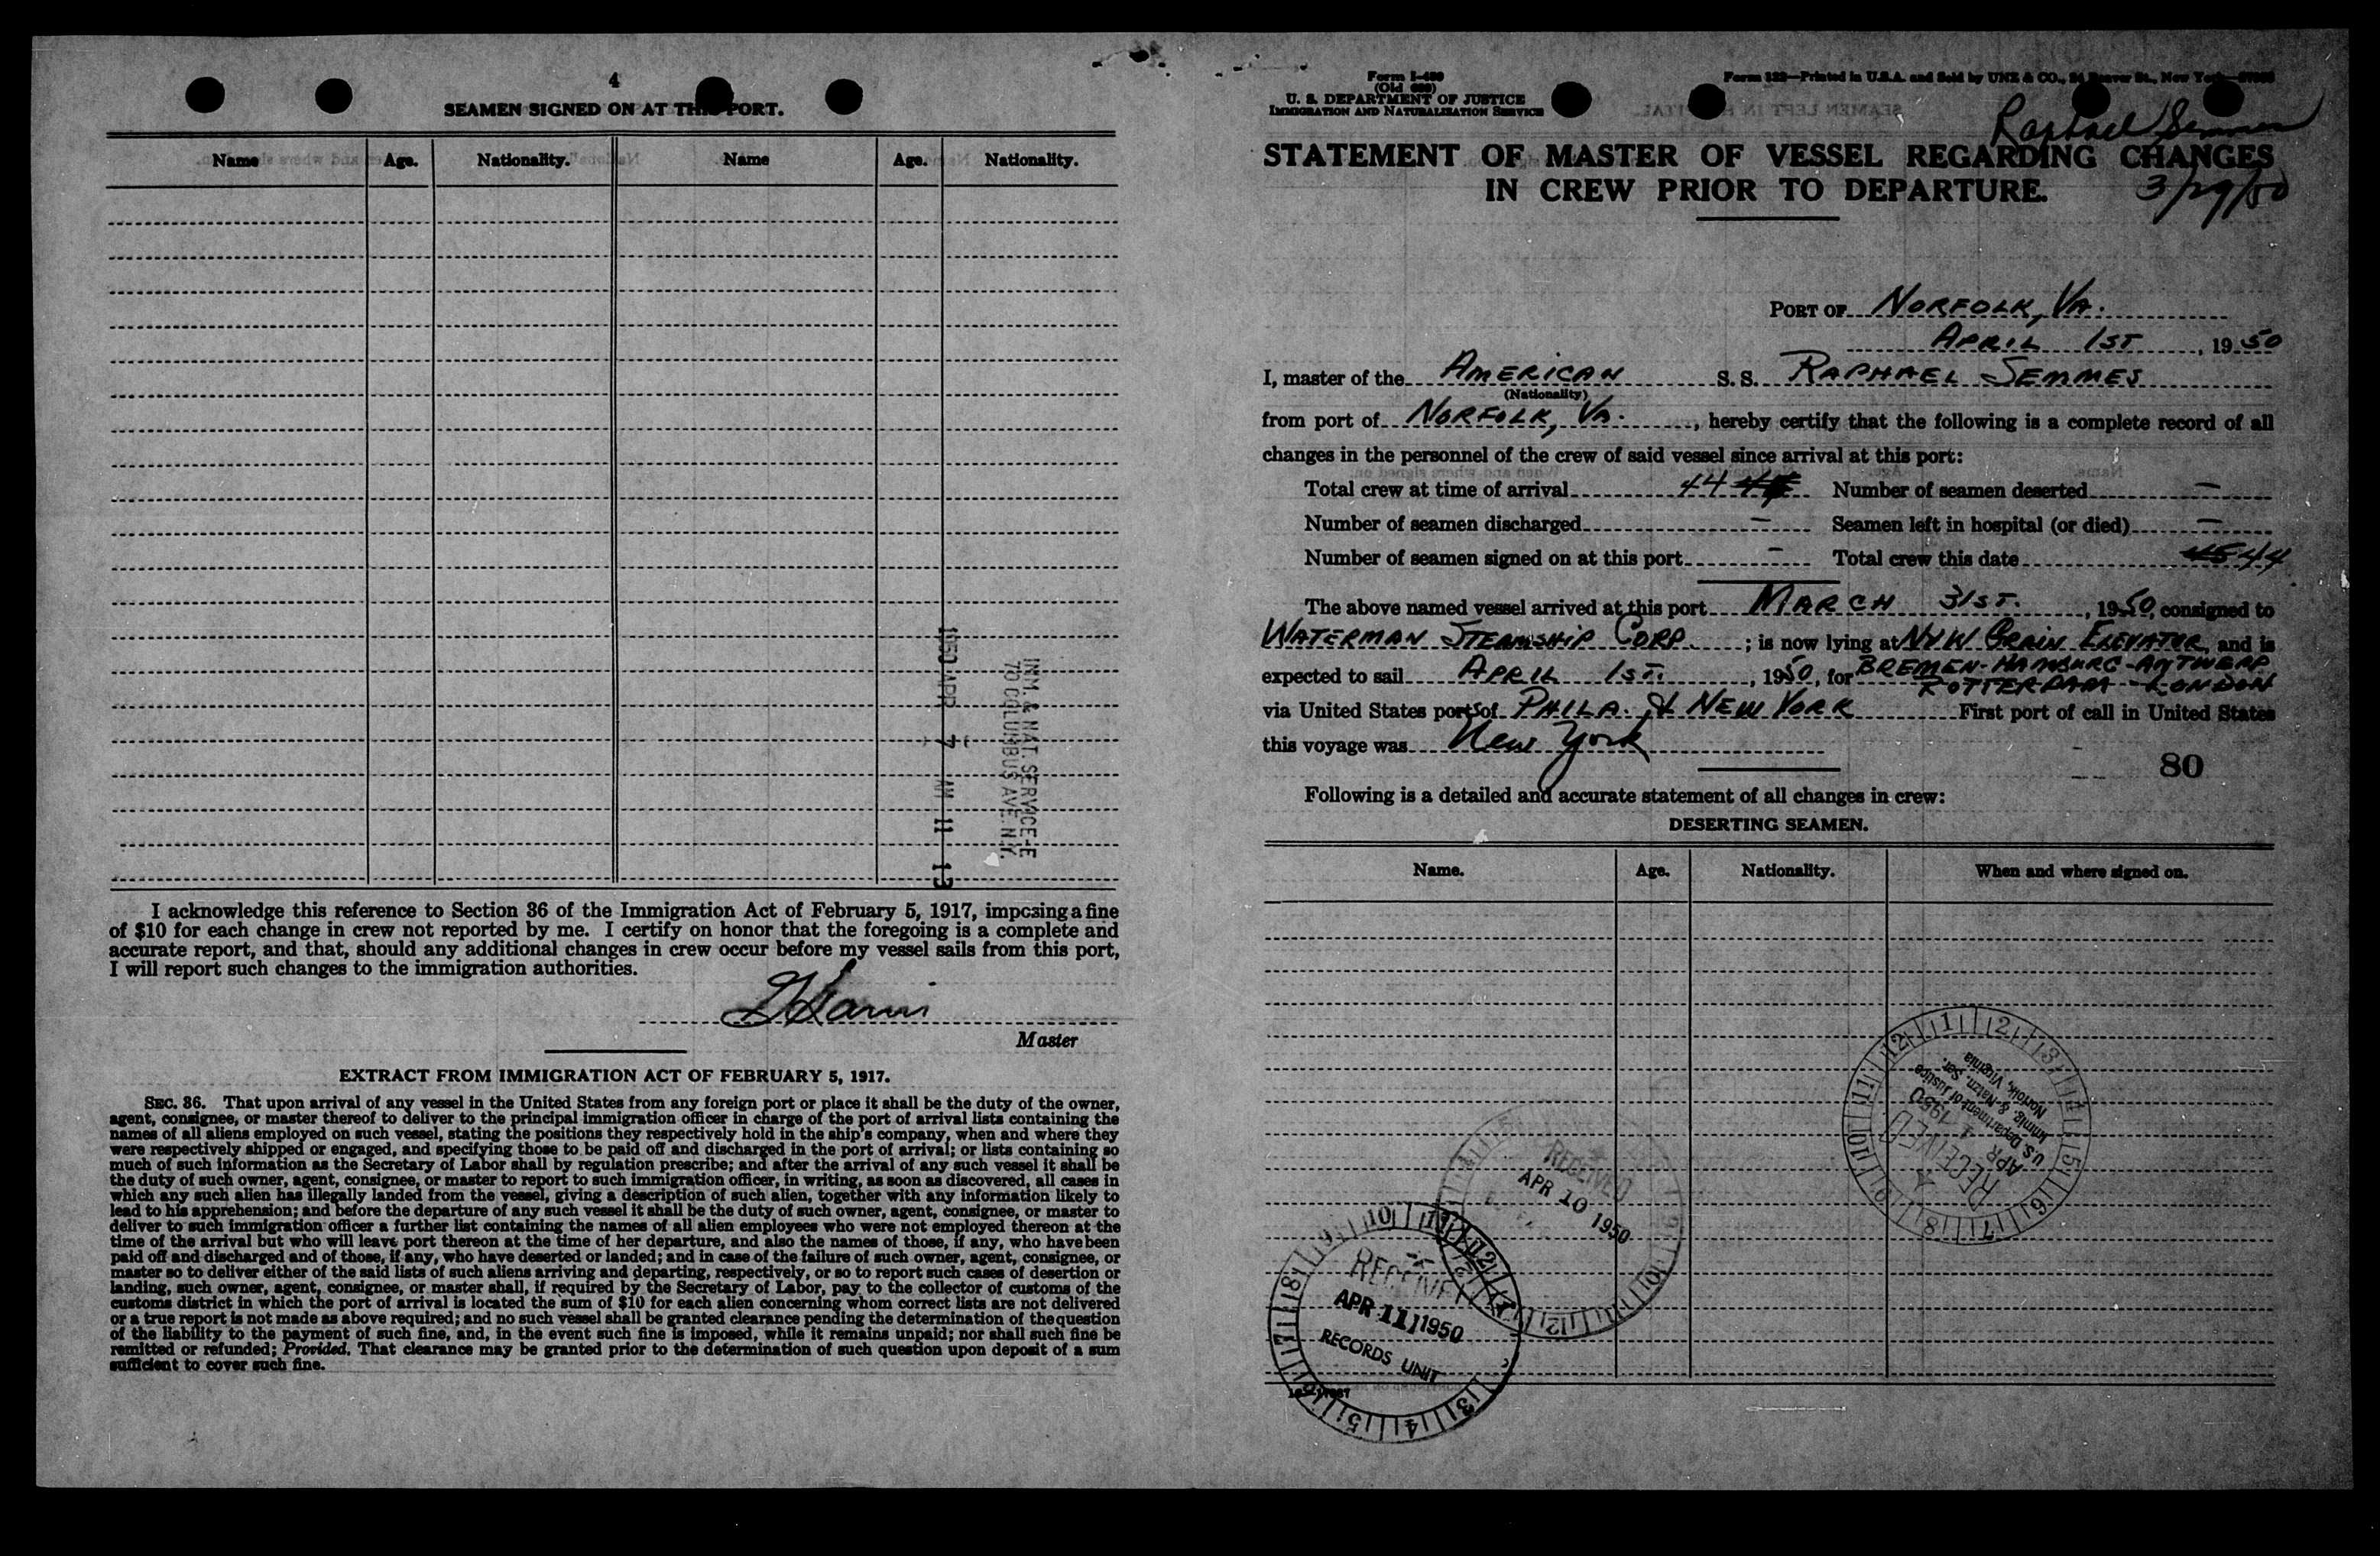 4
SEAMEN SIGNED ON AT THIS PORT.
Name Age. Nationality. Name Age. Nationality.
INM. & NAT. SERVICE-E
70 COLUMBUS AVE. N.Y.
1950 APR 7 AM 11 13
I acknowledge this reference to Section 36 of the Immigration Act of February 5, 1917, imposing a fine
of $10 for each change in crew not reported by me. I certify on honor that the foregoing is a complete and
accurate report, and that, should any additional changes in crew occur before my vessel sails from this port,
I will report such changes to the immigration authorities.
Master
EXTRACT FROM IMMIGRATION ACT OF FEBRUARY 5, 1917.
SEC. 36. That upon arrival of any vessel in the United States from any foreign port or place it shall be the duty of the owner,
agent, consignee, or master thereof to deliver to the principal immigration officer in charge of the port of arrival lists containing the
names of all aliens employed on such vessel, stating the positions they respectively hold in the ship's company, when and where they
were respectively shipped or engaged, and specifying those to be paid off and discharged in the port of arrival; or lists containing so
much of such information as the Secretary of Labor shall by regulation prescribe; and after the arrival of any such vessel it shall be
the duty of such owner, agent, consignee, or master to report to such immigration officer, in writing, as soon as discovered, all cases in
which any such alien has illegally landed from the vessel, giving a description of such alien, together with any information likely to
lead to his apprehension; and before the departure of any such vessel it shall be the duty of such owner, agent, consignee, or master to
deliver to such immigration officer a further list containing the names of all alien employees who were not employed thereon at the
time of the arrival but who will leave port thereon at the time of her departure, and also the names of those, if any, who have been
paid off and discharged and of those, if any, who have deserted or landed; and in case of the failure of such owner, agent, consignee, or
master so to deliver either of the said lists of such aliens arriving and departing, respectively, or so to report such cases of desertion or
landing, such owner, agent, consignee, or master shall, if required by the Secretary of Labor, pay to the collector of customs of the
customs district in which the port of arrival is located the sum of $10 for each alien concerning whom correct lists are not delivered
or a true report is not made as above required; and no such vessel shall be granted clearance pending the determination of the question
of the liability to the payment of such fine, and, in the event such fine is imposed, while it remains unpaid; nor shall such fine be
remitted or refunded; Provided, That clearance may be granted prior to the determination of such question upon deposit of a sum
sufficient to cover such fine.
Form I-489
(Old 689)
U. S. DEPARTMENT OF JUSTICE
IMMIGRATION AND NATURALIZATION SERVICE
Form 122—Printed in U.S.A. and Sold by UNZ & CO., 24 Beaver St., New York
Raphael Semmes
STATEMENT OF MASTER OF VESSEL REGARDING CHANGES
IN CREW PRIOR TO DEPARTURE.
3/29/50
PORT OF NORFOLK, VA.
APRIL 1ST, 1950
I, master of the AMERICAN S. S. RAPHAEL SEMMES
(Nationality)
from port of NORFOLK, VA., hereby certify that the following is a complete record of all
changes in the personnel of the crew of said vessel since arrival at this port:
Total crew at time of arrival 44 Number of seamen deserted —
Number of seamen discharged — Seamen left in hospital (or died) —
Number of seamen signed on at this port - Total crew this date 45 44
The above named vessel arrived at this port MARCH 31ST., 1950, consigned to
WATERMAN STEAMSHIP CORP. ; is now lying at N&W GRAIN ELEVATOR, and is
expected to sail APRIL 1ST., 1950, for BREMEN-HAMBURG-ANTWERP
ROTTERDAM - LONDON
via United States ports of PHILA. & NEW YORK First port of call in United States
this voyage was New York
80
Following is a detailed and accurate statement of all changes in crew:
DESERTING SEAMEN.
Name. Age. Nationality. When and where signed on.
RECEIVED
APR 1 1950
U.S. Department of Justice
Immig. & Natzn. Ser.
Norfolk, Virginia
RECEIVED
APR 10 1950
RECEIVED
APR 11 1950
RECORDS UNIT